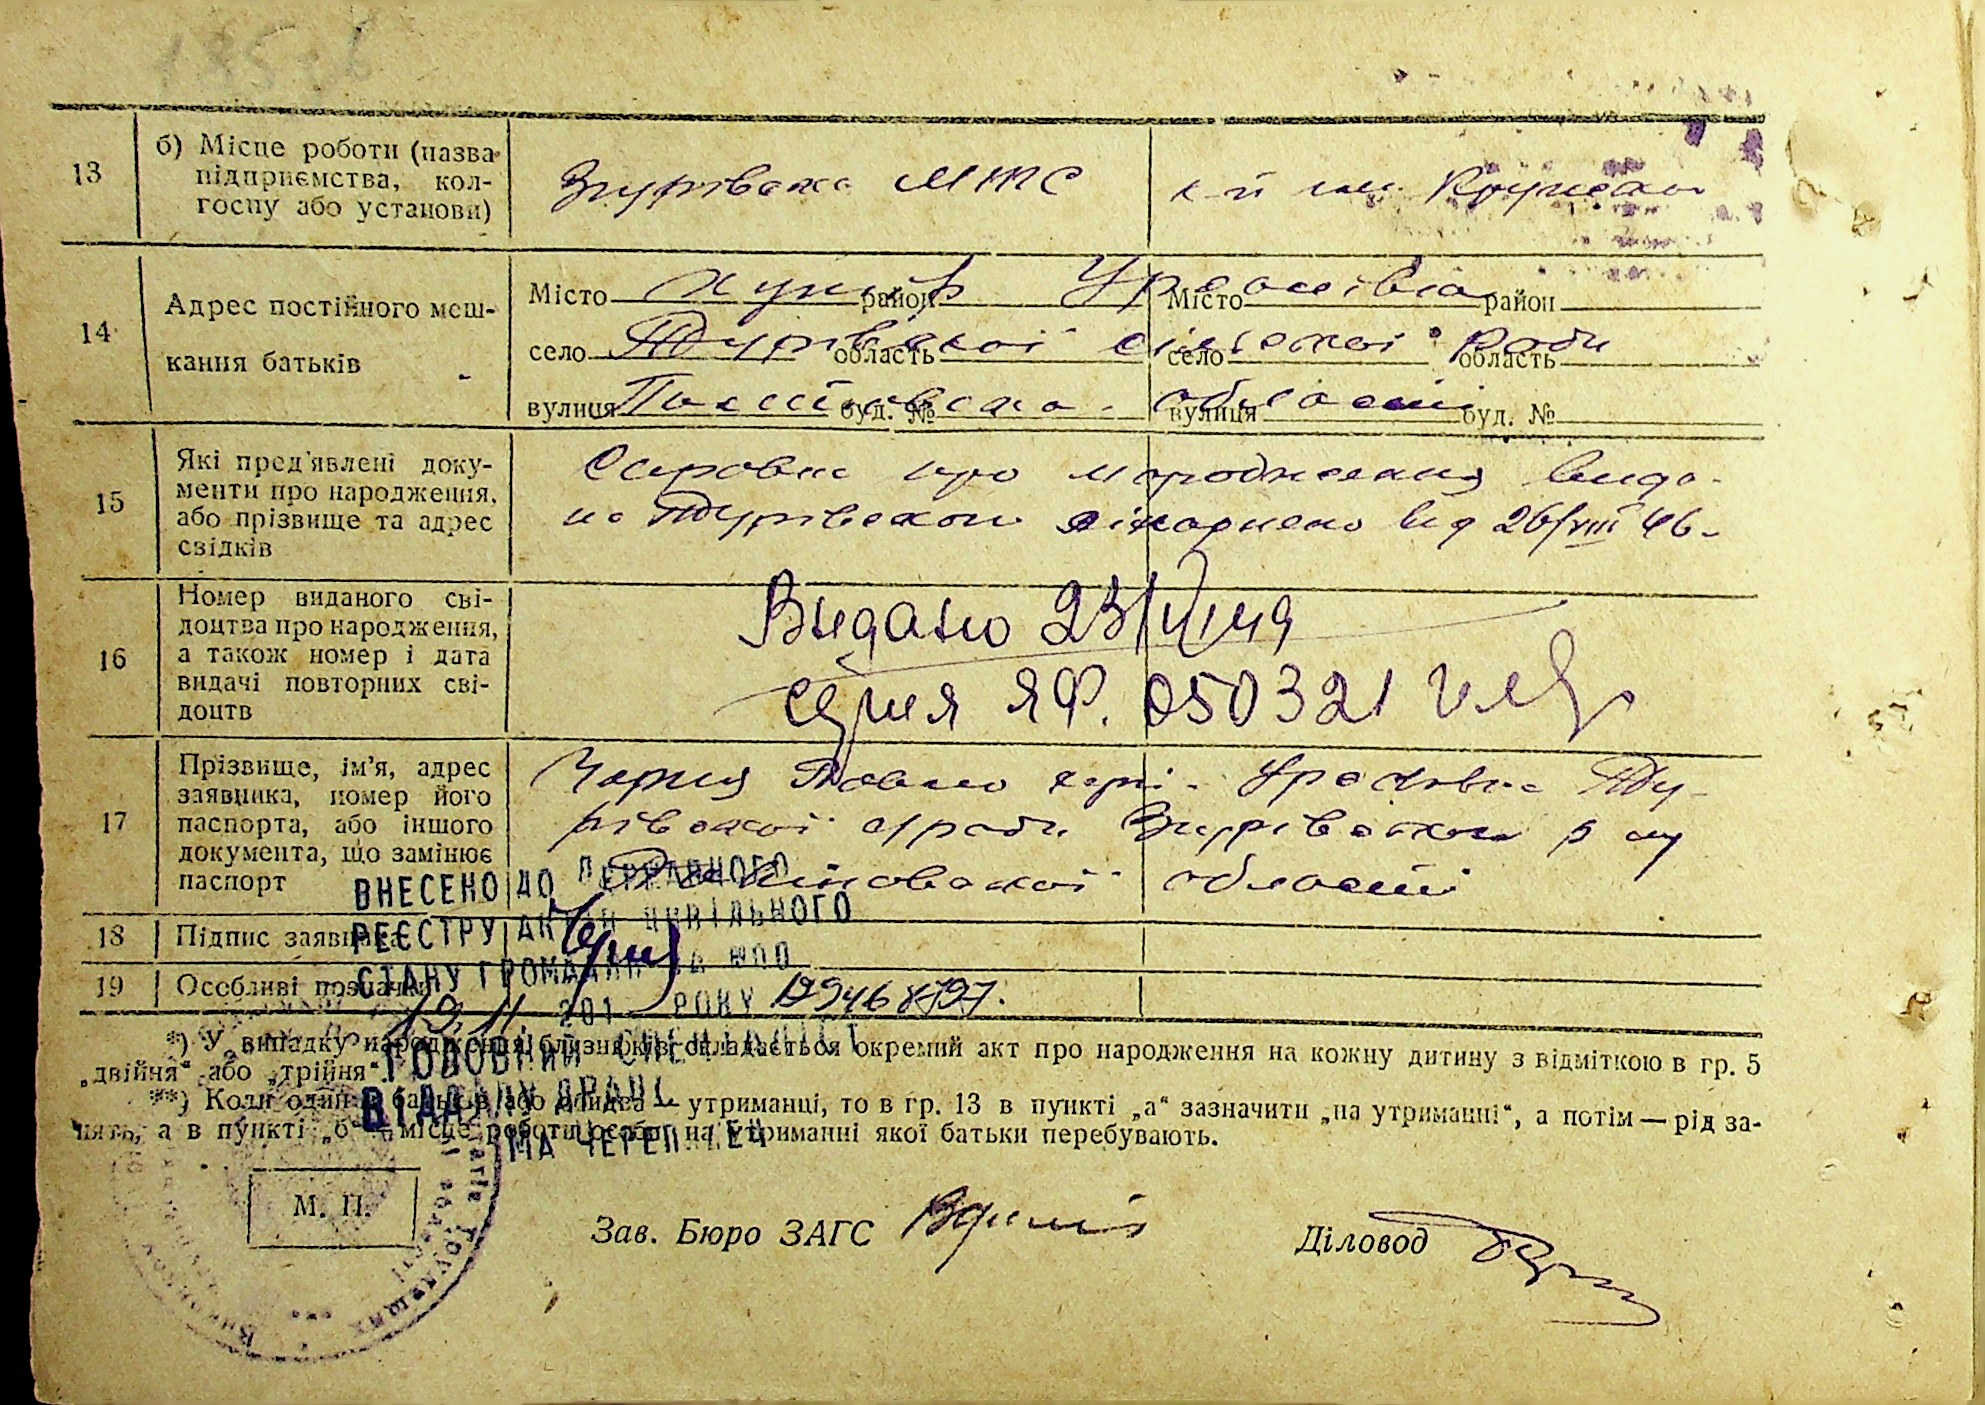 13
б) Місце роботи (назва
підприємства, кол-
госпу або установи)
Згурівська МТС
к-п ім. Крупської
14
Адрес постійного меш-
кання батьків
Місто район Місто район
хутір Урсалівка
село область село область
Турівської сільської Ради
вулиця буд. № вулиця буд. №
Полтавська області
15
Які пред'явлені доку-
менти про народження,
або прізвище та адрес
свідків
Справка про народження вида-
на Турівською лікарнею від 26/VIII 46
16
Номер виданого сві-
доцтва про народження,
а також номер і дата
видачі повторних сві-
доцтв
Видано
серия ЯФ. 050321
17
Прізвище, ім'я, адрес
заявника, номер його
паспорта, або іншого
документа, що замінює
паспорт
Павло Ту-
рівської с/ради Згурівського р-ну
Полтавської області
18
Підпис заявника
19
Особливі позначки
ВНЕСЕНО ДО ДЕРЖАВНОГО
РЕЄСТРУ АКТІВ ЦИВІЛЬНОГО
СТАНУ ГРОМАДЯН ЗА №00
201 РОКУ
ГОЛОВНИЙ СПЕЦІАЛІСТ
ВІДДІЛУ ДРАЦС
*) У випадку народження близнюків складається окремий акт про народження на кожну дитину з відміткою в гр. 5
„двійня“ або „трійня“.
**) Коли один з батьків або обидва — утриманці, то в гр. 13 в пункті „а“ зазначити „на утриманні“, а потім — рід за-
нять, а в пункті „б“ — місце роботи особи, на утриманні якої батьки перебувають.
М. П.
Зав. Бюро ЗАГС
Діловод